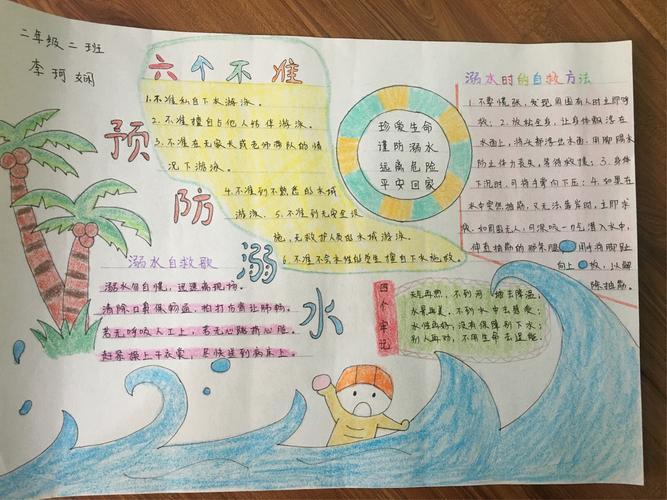 二年级二班
李珂娴
六个不准
1.不准私自下水游泳。
2.不准擅自与他人结伴游泳。
3.不准在无家长或老师带队的情
况下游泳。
4.不准到不熟悉的水域
游泳。5.不准到无安全设
施,无救护人员的水域游泳。
6.不准不会水性的学生擅自下水施救。
预防溺水
珍爱生命
谨防溺水
远离危险
平安回家
溺水时的自救方法
1.不要慌张,发现周围有人时立即呼
救;2.放松全身,让身体飘浮在
水面上,将头部浮出水面,用脚踢水
防止体力丧失,等待救援;3.身体
下沉时,可将手掌向下压;4.如果在
水中突然抽筋,又无法靠岸时,立即求
救。如周围无人,可深吸一气潜入水中,
伸直抽筋的那条腿,用手将脚趾
向上扳,以解
除抽筋。
溺水自救歌
溺水勿自慌,迅速离现场。
清除口鼻保畅益,拍打后背让肺畅。
若无呼吸人工上,若无心跳挤心脏。
赶紧换上干衣裳,尽快送到病床上。
四个牢记
天热再热,不到河边去降温;
水景再美,不到水中去嬉耍;
水性再好,没有保障别下水;
别人再劝,不用生命去逞能。